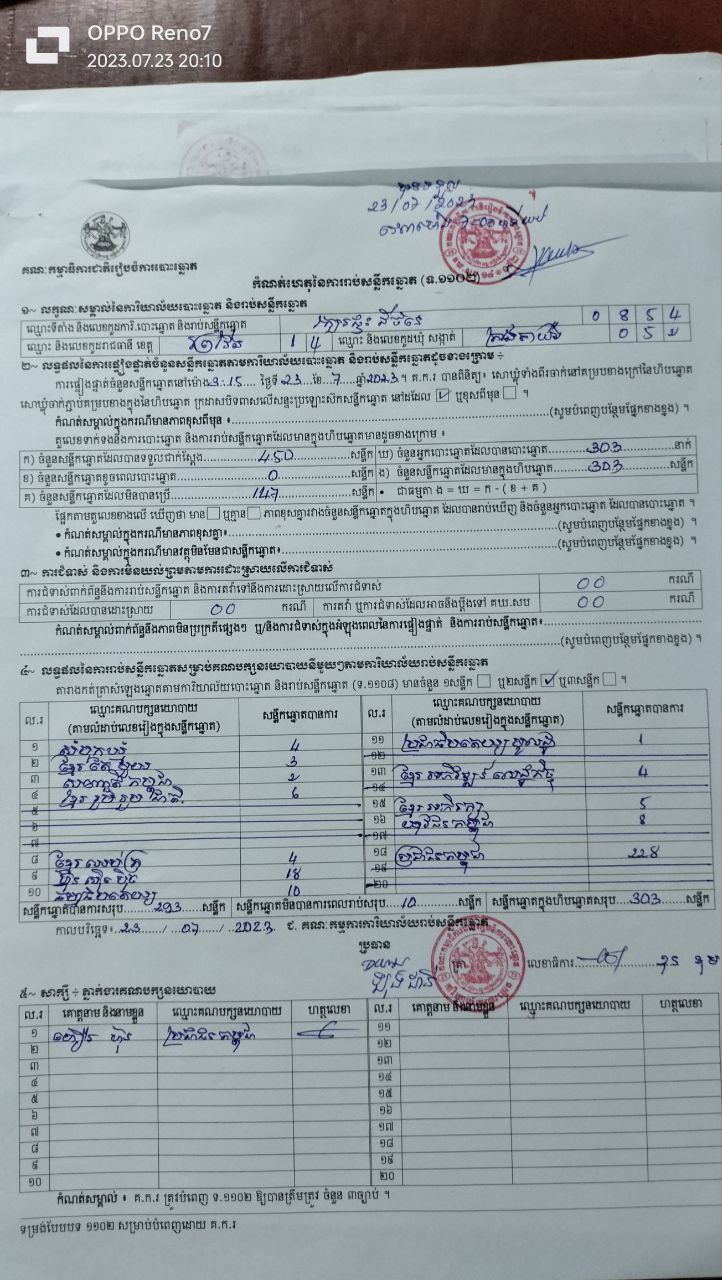 OPPO Reno7
2023.07.23 20:10
23/07/2023
គណៈកម្មាធិការជាតិរៀបចំការបោះឆ្នោត
កំណត់ហេតុនៃការរាប់សន្លឹកឆ្នោត (ទ.១១០២)
១~ លក្ខណៈសម្គាល់នៃការិយាល័យបោះឆ្នោត និងរាប់សន្លឹកឆ្នោត
ឈ្មោះទីតាំង និងលេខកូដការិ.បោះឆ្នោត និងរាប់សន្លឹកឆ្នោត 0 8 5 4
ឈ្មោះ និងលេខកូដរាជធានី ខេត្ត ព្រៃវែង 1 4 ឈ្មោះ និងលេខកូដឃុំ សង្កាត់ 0 5
២~ លទ្ធផលនៃការផ្ទៀងផ្ទាត់ចំនួនសន្លឹកឆ្នោតតាមការិយាល័យបោះឆ្នោត និងរាប់សន្លឹកឆ្នោតដូចខាងក្រោម ៖
ការផ្ទៀងផ្ទាត់ចំនួនសន្លឹកឆ្នោតនៅម៉ោង3:15 ថ្ងៃទី 23 ខែ 7 ឆ្នាំ2023។ គ.ក.រ បានពិនិត្យ៖ សោឃុំទាំងពីរចាក់នៅគម្របខាងក្រៅនៃហិបឆ្នោត
សោឃុំចាក់ភ្ជាប់គម្របខាងក្នុងនៃហិបឆ្នោត ក្រដាសបិទពាសលើសន្ទះប្រឡោះសិកសន្លឹកឆ្នោត នៅដដែល ☑ ឬខុសពីមុន ☐ ។
កំណត់សម្គាល់ក្នុងករណីមានភាពខុសពីមុន ៖ (សូមបំពេញបន្ថែមផ្នែកខាងខ្នង) ។
តួលេខទាក់ទងនឹងការបោះឆ្នោត និងការរាប់សន្លឹកឆ្នោតដែលមានក្នុងហិបឆ្នោតមានដូចខាងក្រោម ៖
ក) ចំនួនសន្លឹកឆ្នោតដែលបានទទួលជាក់ស្តែង 450 សន្លឹក ឃ) ចំនួនអ្នកបោះឆ្នោតដែលបានបោះឆ្នោត 303 នាក់
ខ) ចំនួនសន្លឹកឆ្នោតខូចពេលបោះឆ្នោត 0 សន្លឹក ង) ចំនួនសន្លឹកឆ្នោតដែលមានក្នុងហិបឆ្នោត 303 សន្លឹក
គ) ចំនួនសន្លឹកឆ្នោតដែលមិនបានប្រើ 147 សន្លឹក • ជាធម្មតា ង = ឃ = ក - ( ខ + គ )
ផ្អែកតាមតួលេខខាងលើ ឃើញថា មាន ☐ ឬគ្មាន ☐ ភាពខុសគ្នារវាងចំនួនសន្លឹកឆ្នោតក្នុងហិបឆ្នោត ដែលបានរាប់ឃើញ និងចំនួនអ្នកបោះឆ្នោត ដែលបានបោះឆ្នោត ។
• កំណត់សម្គាល់ក្នុងករណីមានភាពខុសគ្នា៖ (សូមបំពេញបន្ថែមផ្នែកខាងខ្នង) ។
• កំណត់សម្គាល់ក្នុងករណីមានវត្ថុមិនមែនជាសន្លឹកឆ្នោត៖ (សូមបំពេញបន្ថែមផ្នែកខាងខ្នង) ។
៣~ ការជំទាស់ និងការមិនយល់ព្រមតាមការដោះស្រាយលើការជំទាស់
ការជំទាស់ពាក់ព័ន្ធនឹងការរាប់សន្លឹកឆ្នោត និងការតវ៉ាទៅនឹងការដោះស្រាយលើការជំទាស់ 00 ករណី
ការជំទាស់ដែលបានដោះស្រាយ 00 ករណី ការតវ៉ា ឬការជំទាស់ដែលអាចនឹងប្តឹងទៅ គឃ.សប 00 ករណី
កំណត់សម្គាល់ពាក់ព័ន្ធនឹងភាពមិនប្រក្រតីផ្សេងៗ ឬ/និងការជំទាស់ក្នុងអំឡុងពេលនៃការផ្ទៀងផ្ទាត់ និងការរាប់សន្លឹកឆ្នោត៖
(សូមបំពេញបន្ថែមផ្នែកខាងខ្នង) ។
៤~ លទ្ធផលនៃការរាប់សន្លឹកឆ្នោតសម្រាប់គណបក្សនយោបាយនីមួយៗតាមការិយាល័យរាប់សន្លឹកឆ្នោត
តារាងកត់ត្រាសំឡេងឆ្នោតតាមការិយាល័យបោះឆ្នោត និងរាប់សន្លឹកឆ្នោត (ទ.១១០៨) មានចំនួន ១សន្លឹក ☐ ឬ២សន្លឹក ☑ ឬ៣សន្លឹក ☐ ។
ល.រ ឈ្មោះគណបក្សនយោបាយ (តាមលំដាប់លេខរៀងក្នុងសន្លឹកឆ្នោត) សន្លឹកឆ្នោតបានការ ល.រ ឈ្មោះគណបក្សនយោបាយ (តាមលំដាប់លេខរៀងក្នុងសន្លឹកឆ្នោត) សន្លឹកឆ្នោតបានការ
១ 4 ១១ 1
២ ខ្មែរតែមួយ 3 ១២
៣ សញ្ជាតិកម្ពុជា ១៣ ខ្មែរអភិវឌ្ឍន៍សេដ្ឋកិច្ច 4
៤ ខ្មែររួបរួមជាតិ 6
៥ ១៥ ខ្មែរអភិរក្ស 5
៦ ១៦ 8
៧ ១៧
៨ 4 ១៨ ប្រជាជនកម្ពុជា 228
៩ ហ្វ៊ុនស៊ិនប៉ិច 18 ១៩
១០ 10 ២០
សន្លឹកឆ្នោតបានការសរុប 293 សន្លឹក សន្លឹកឆ្នោតមិនបានការពេលរាប់សរុប 10 សន្លឹក សន្លឹកឆ្នោតក្នុងហិបឆ្នោតសរុប 303 សន្លឹក
កាលបរិច្ឆេទ៖ 23 / 07 / 2023 ជ. គណៈកម្មការការិយាល័យរាប់សន្លឹកឆ្នោត
ប្រធាន
ត្រា លេខាធិការ
៥~ សាក្សី ៖ ភ្នាក់ងារគណបក្សនយោបាយ
ល.រ គោត្តនាម និងនាមខ្លួន ឈ្មោះគណបក្សនយោបាយ ហត្ថលេខា ល.រ គោត្តនាម និងនាមខ្លួន ឈ្មោះគណបក្សនយោបាយ ហត្ថលេខា
១ ប្រជាជនកម្ពុជា ១១
២ ១២
៣ ១៣
៤ ១៤
៥ ១៥
៦ ១៦
៧ ១៧
៨ ១៨
៩ ១៩
១០ ២០
កំណត់សម្គាល់ ៖ គ.ក.រ ត្រូវបំពេញ ទ.១១០២ ឱ្យបានត្រឹមត្រូវ ចំនួន ៣ច្បាប់ ។
ទម្រង់បែបបទ ១១០២ សម្រាប់បំពេញដោយ គ.ក.រ